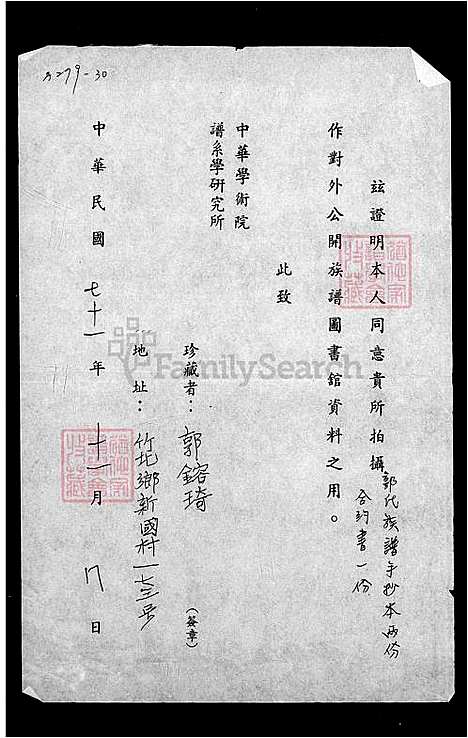 玆證明本人同意貴所拍攝郭氏族譜手抄本兩份
合約書一份
作對外公開族譜圖書館資料之用。
此致
中華學術院
譜系學研究所
珍藏者：郭鎔琦（簽章）
地址：竹北鄉新國村一七三号
中華民國七十一年十一月八日
5279-30
FamilySearch